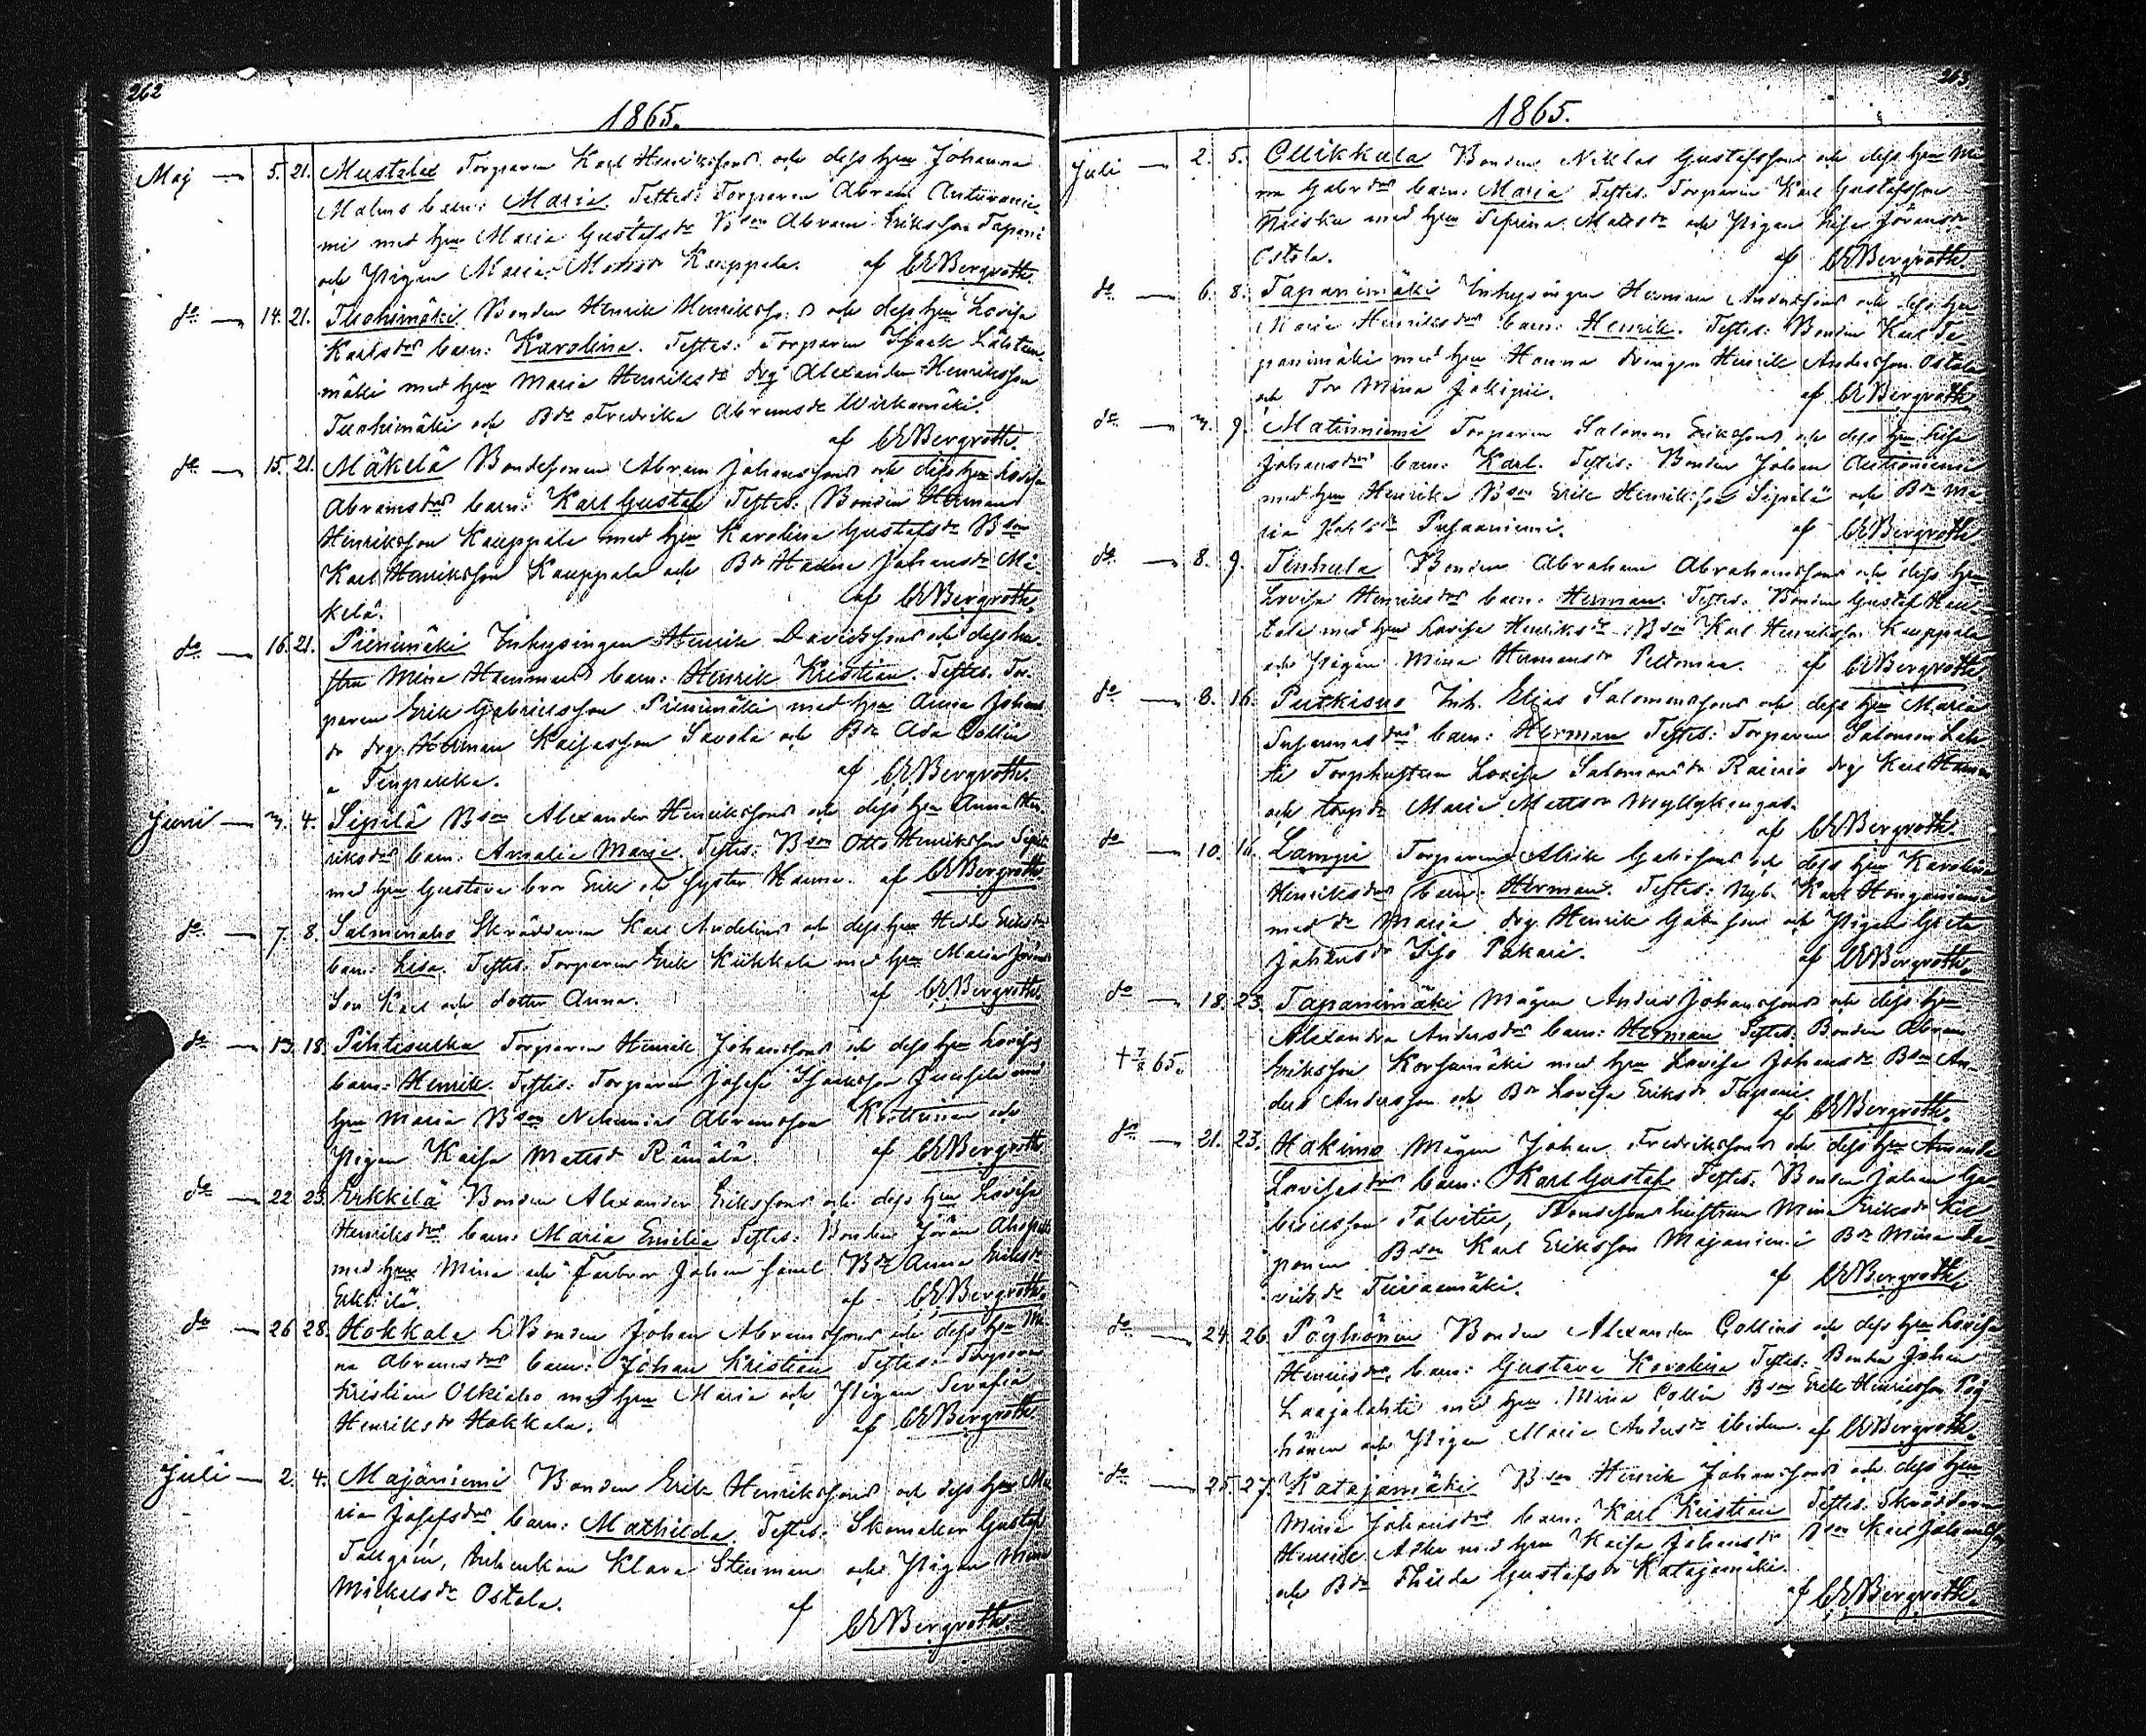 262
1865.
Maj 5. 21. Mustalax Torparen Karl Henrikssons och dess hru Johanna
Malms barn: Maria. Testes: Torparen Abram
mi med hru Maria Gustafsdr Bson Abram Eriksson Tapani
och Pigan Maria Kauppala. af CEBergroth.
do 14. 21. Tuohimäki Bonden Henrik Henrikssons och dess hru Lovisa
Karlsdrs barn: Karolina. Testes: Torparen Isaak
mäki med hru Maria Henriksdr drg Alexander Henriksson
Tuohimäki och Bdr Fredrika Abramsdr Wirkamäki.
af CEBergroth.
do 15. 21. Mäkelä Bondesonen Abram Johanssons och dess hru Lovisa
Abramsdrs barn: Karl Gustaf Testes: Bonden Herman
Henriksson Kauppala med hru Karolina Gustafsdr Bson
Karl Henriksson Kauppala och Bdr Hanna Johansdr Mä-
kelä. af CEBergroth.
do 16. 21. Pienimäki Inhysingen Henrik Davidssons och dess hu-
stru Mina barn: Henrik Kristian. Testes. Tor-
paren Erik Gabrielsson Pienimäki med hru Anna Johans
dr drg. Herman Kaisasson Savola och Bdr Ada Collin
a af CEBergroth.
Juni 3. 4. Sipilä Bson Alexander Henrikssons och dess hru Anna Hen-
riksdrs barn: Amalia Maria. Testes: Bson Otto Henriksson Sipilä
med hru Gustava bror Erik och syster Hanna. af CEBergroth.
do 7. 8. Salmenaho Skräddaren Karl Andelins och dess hru Hedda Eriksdrs
barn: Lisa. Testes: Torparen Erik Kiikkala med hru Maria
Son Karl och dotter Anna. af CEBergroth.
do 13. 18. Pihtisulka Torparen Henrik Johanssons och dess hru Lovisas
barn: Henrik. Testes: Torparen Josef Isaksson med
hru Maria Bson Nehemias Abramsson och
Pigan Kaisa Mattsdr Rämälä af CEBergroth
do 22 23. Erkkilä Bonden Alexander Erikssons och dess hru Lovisa
Henriksdrs barn: Maria Emilia Testes: Bonden Jöran
med hru Mina och Farbror Johan samt Bdr Anna Eriksdr
Erkkilä. af CEBergroth.
do 26 28. Hokkala Bonden Johan Abramssons och dess hru Mi-
na Abramsdrs barn: Johan Kristian Testes: Torparen
Kristian Olkiaho med hru Maria och Pigan Serafia
Henriksdr Hokkala. af CEBergroth
Juli 2. 4. Majaniemi Bonden Erik Henrikssons och dess hru Ma-
ria Josefsdrs barn: Mathilda. Testes: Skomakar Gustaf
Tallgrén, Enkan Klara Stenman och Pigan Mina
Mickelsdr Ostola. af
CEBergroth.
263
1865.
Juli 2. 5. Ollikkala Bonden Niklas Gustafssons och dess hru Mi-
na Gabrdrs barn: Maria Testes: Torparen Karl Gustafsson
med hru Serina Mattsdr och Pigan Lisa Jöransdr
Ostola. af CEBergroth.
do 6. 8. Tapanimäki Inhysingen Herman Anderssons och dess hru
Maria Henriksdrs barn: Henrik. Testes: Bonden Karl Ta-
panimäki med hru Hanna drengen Henrik Andersson Ostola
och Tdr Mina Jokipii. af CEBergroth.
do 3. 9. Matinniemi Torparen Salomon Erikssons och dess hru Lisa
Johansdrs barn: Karl. Testes: Bonden Johan Autioniemi
med hru Henrika Bson Erik Henriksson Sipilä och Bdr Ma-
ria af CEBergroth
do 8. 9. Tenhula Bonden Abraham Abrahamssons och dess hru
Lovisa Henriksdrs barn: Herman. Testes: Bonden Gustaf Hau-
tala med hru Lovisa Henriksdr Bson Karl Henriksson Kauppala
och Pigan Mina Hermansdr Peltomaa. af CEBergroth
do 8. 16. Putkisuo Inh. Elias Salomonssons och dess hru Maria
Susannasdrs barn: Herman Testes: Torparen Salomon Lah-
ti Torphustrun Lovisa Salomonsdr Rainio drg Karl Herman
och torpdr Maria Mattsdr Myllykangas.
af CEBergroth.
do 10. 16. Lampi Torparen Gabrssons och dess hru Karolina
Henriksdrs barn: Herman. Testes: Nyb. Karl Honganiemi
med dr Maria drg. Henrik Gabrsson och Pigan Greta
Johansdr Iso Pakari. af CEBergroth.
do 18. 23. Tapanimäki Mågen Anders Johanssons och dess hru
Alexandra Andersdrs barn: Herman Testes: Bonden Abram
† 7/8 65. Eriksson Korhamäki med hru Lovisa Johansdr Bson An-
ders Andersson och Bdr Lovisa Eriksdr Tapani.
af CEBergroth.
do 21. 23. Hakimo Mågen Johan Fredrikssons och dess hru Amanda
Lovisasdrs barn: Karl Gustaf Testes: Bonden Johan Ga-
brielsson Talvitie, Bondesonshustrun Mina Eriksdr Kil
ponen Bson Karl Eriksson Majaniemi Bdr Mina Da-
vidsdr Turvaamäki. af CEBergroth.
do 24. 26. Pöyhönen Bonden Alexander Collins och dess hru Lovisa
Henriksdrs barn: Gustava Karolina Testes: Bonden Johan
Laajalahti med hru Mina Collin Bson Erik Henriksson Pöy-
hönen och Pigan Maria Andersdr ibidem. af CEBergroth.
do 25. 27. Katajamäki Bson Henrik Johanssons och dess hru
Mina Johansdrs barn: Karl Kristian Testes: Skräddaren
Henrik Adler med hru Kaisa Johansdr Bson Karl Johansson
och Bdr Thilda Gustafsdr Katajamäki.
af CEBergroth.